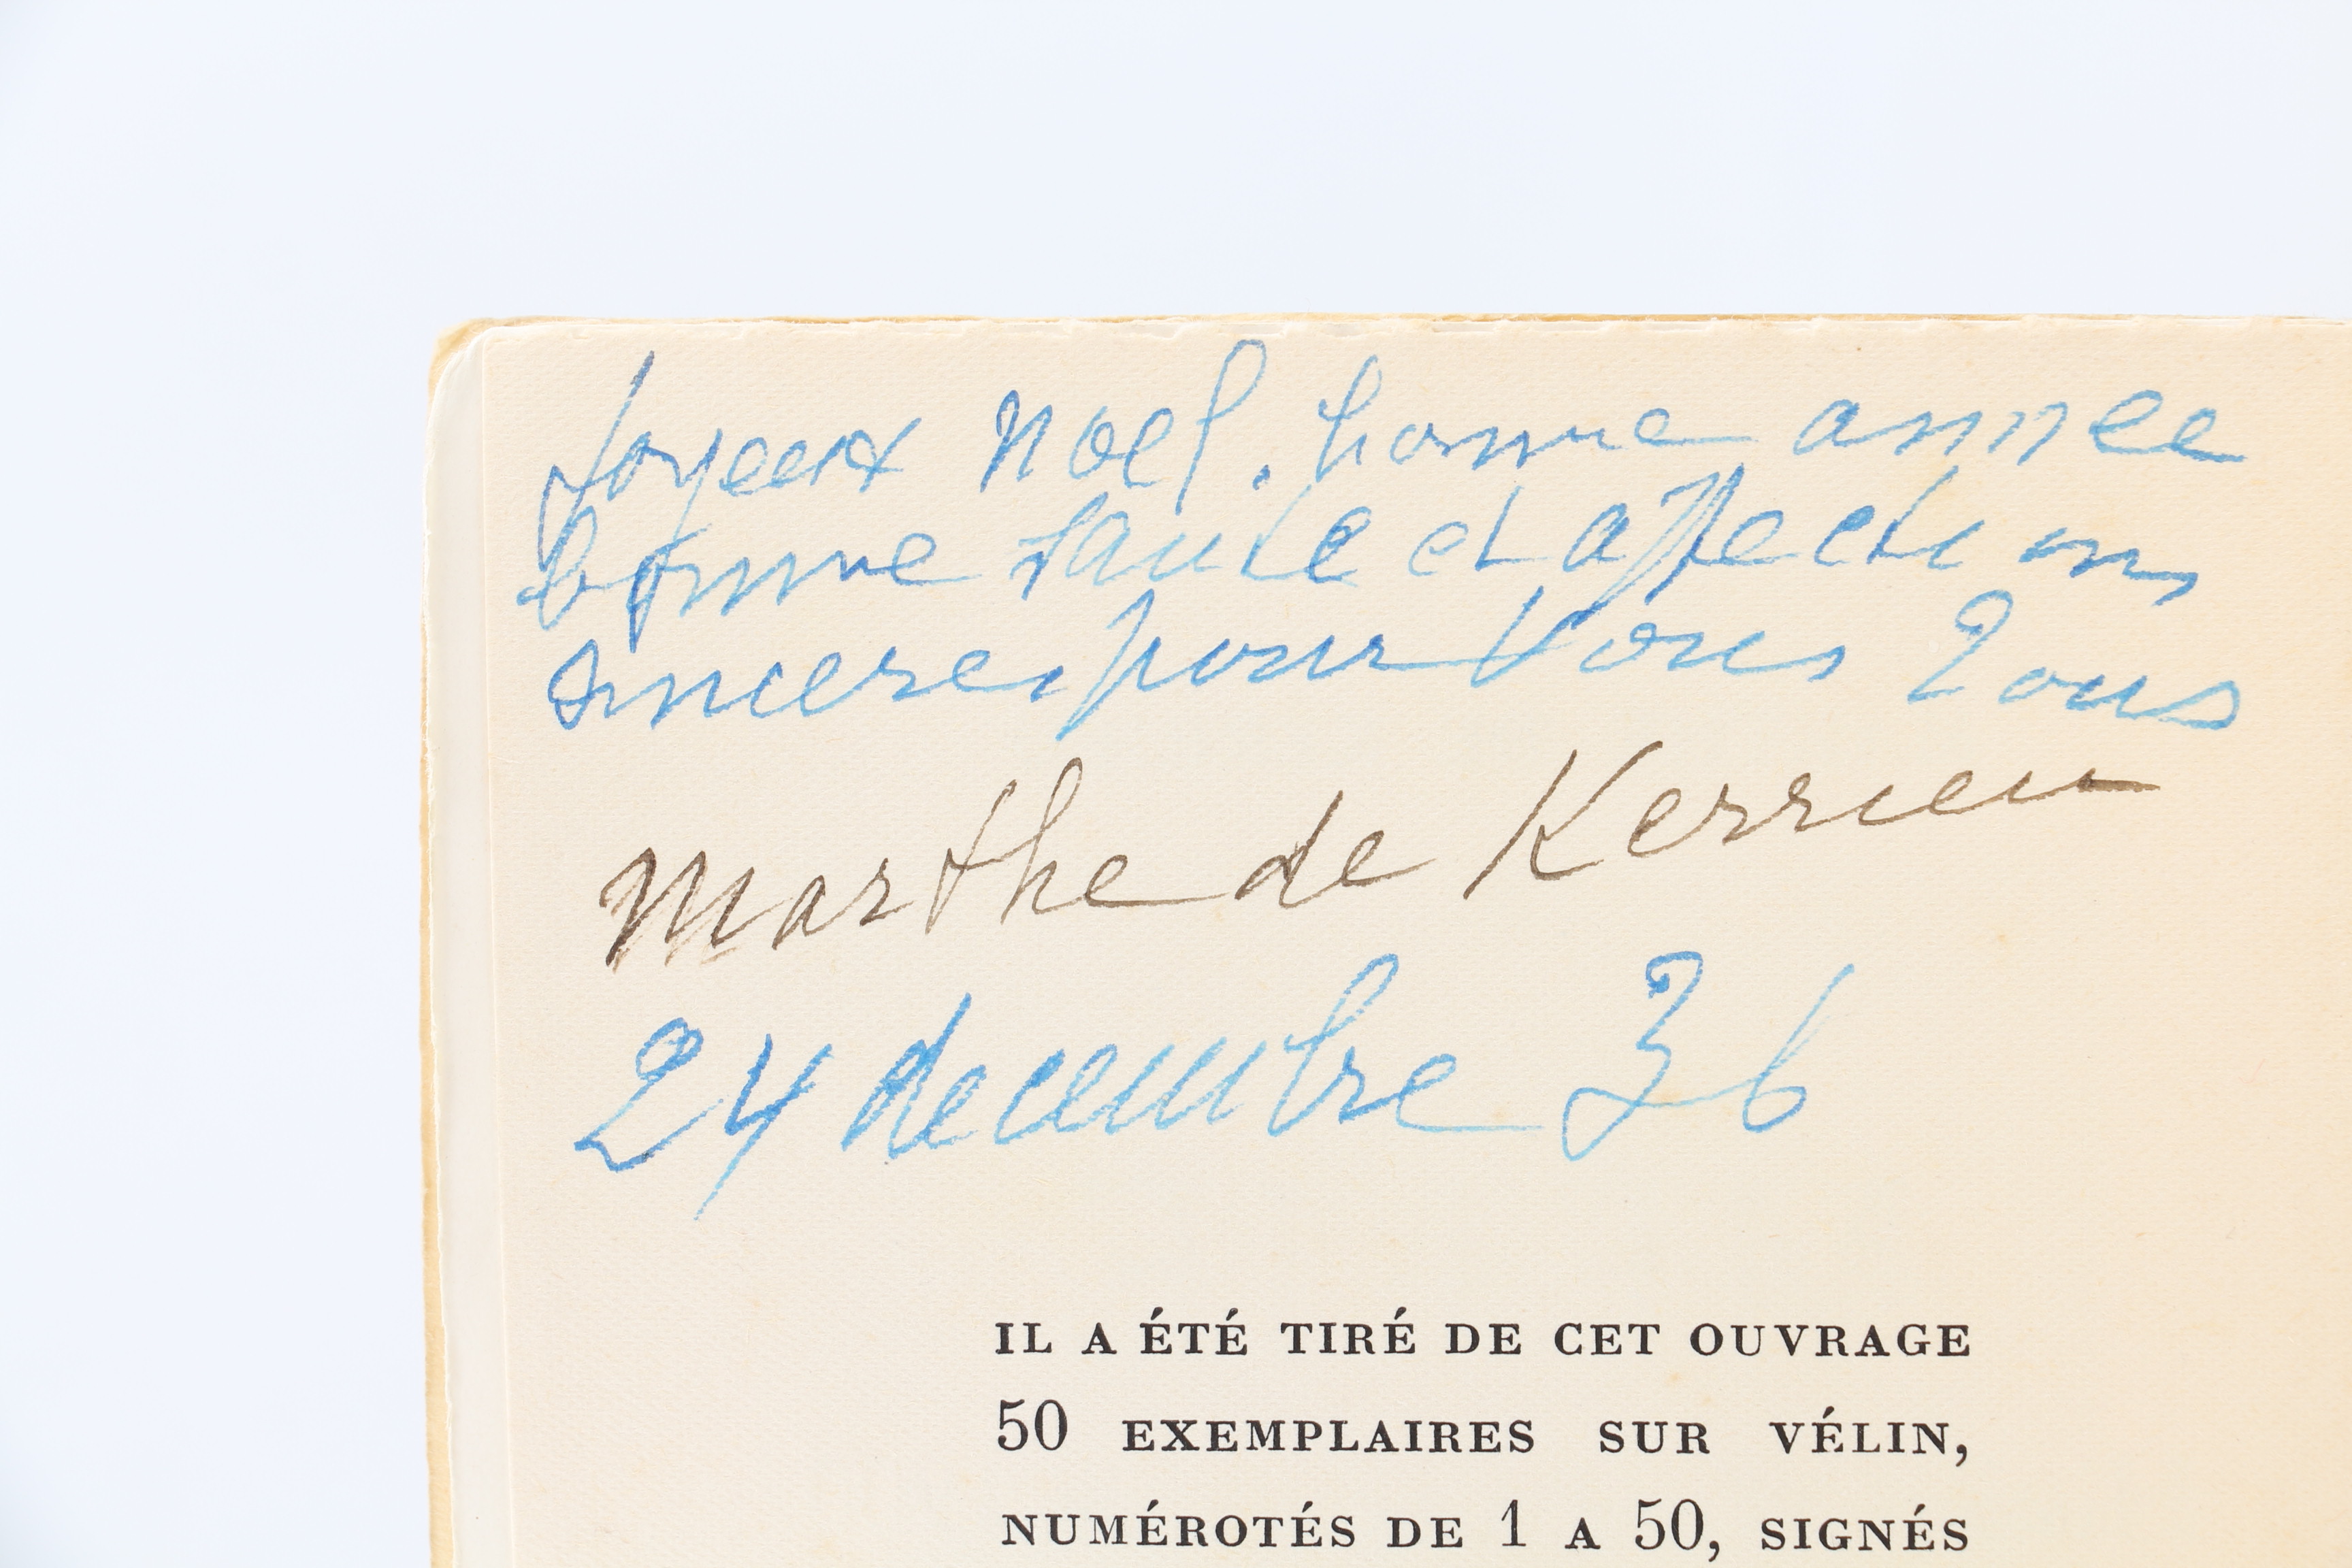 Joyeux Noel. bonne annee
bonne sante et affections
sinceres pour Vous Tous
Marthe de Kerrieu
24 decembre 36
IL A ÉTÉ TIRÉ DE CET OUVRAGE
50 EXEMPLAIRES SUR VÉLIN,
NUMÉROTÉS DE 1 A 50, SIGNÉS